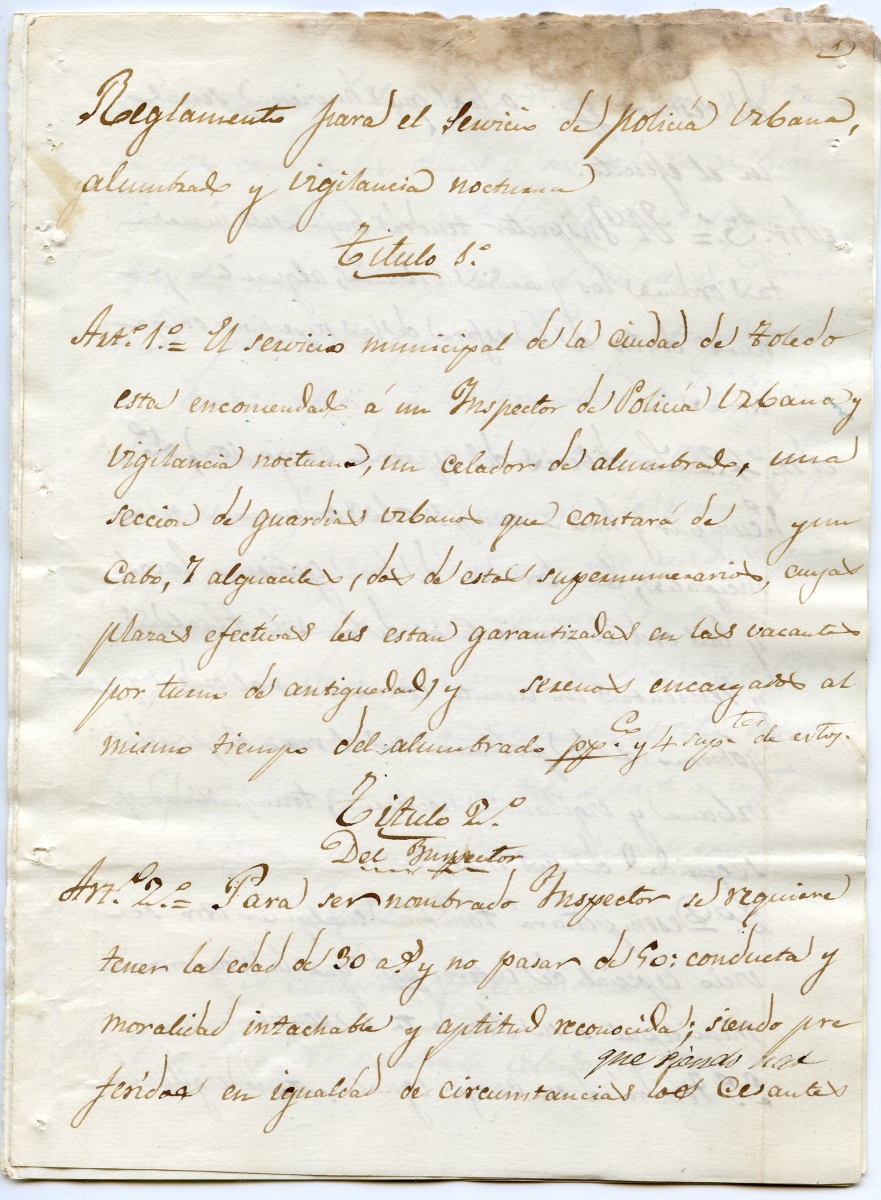 1
Reglamento para el servicio de policia Urbana,
alumbrado y vigilancia nocturna
Titulo 1.º
Art.º 1.º = El servicio municipal de la ciudad de Toledo
esta encomendado á un Inspector de Policia Urbana y
vigilancia nocturna, un celador de alumbrado, una
seccion de guardias Urbanos que constará de y un
Cabo, 7 alguaciles, (dos de estos supernumerarios, cuyas
plazas efectivas les estan garantizadas en las vacantes
por turno de antiguedad) y serenos encargados al
mismo tiempo del alumbrado pp.co y 4 sup.tes de estos.
Titulo 2.º
Del Inspector
Art.º 2.º = Para ser nombrado Inspector se requiere
tener la edad de 30 a.s y no pasar de 50: conducta y
moralidad intachable y aptitud reconocida; siendo pre
que siendo
feridos en igualdad de circunstancias los Cesantes